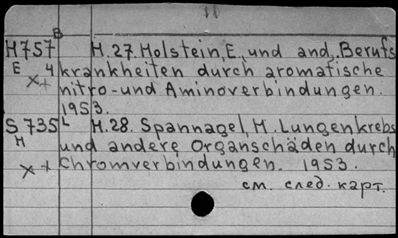 11
B
H757 H.27. Holstein, E. und and. Berufs
E 4 krankheiten durch aromatische
x+ nitro-und Aminoverbindungen.
1953.
S 735 L H.28. Spannagel, H. Lungenkrebs
H und andere Organschäden durch
x+ Chromverbindungen. 1953.
см. след. карт.